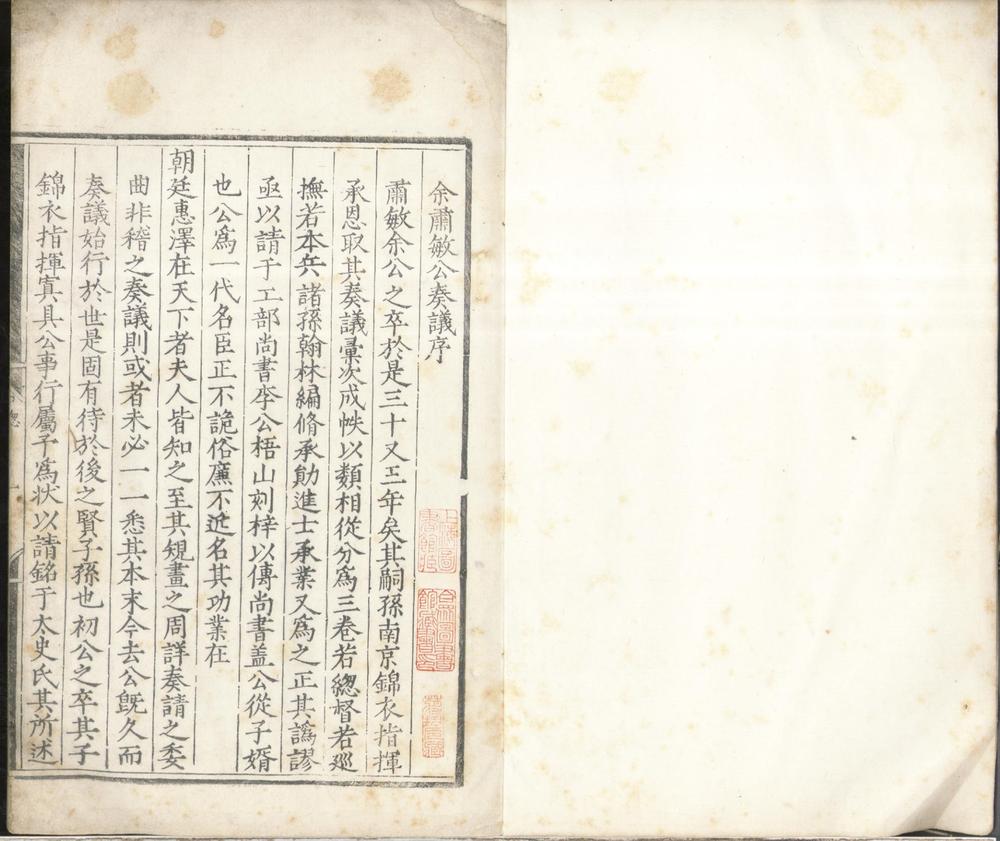 余肅敏公奏議序
肅敏余公之卒於是三十又三年矣其嗣孫南京錦衣指揮
承恩取其奏議彙次成帙以類相從分爲三卷若總督若巡
撫若本兵諸孫翰林編脩承勛進士承業又爲之正其譌謬
亟以請于工部尚書李公梧山刻梓以傳尚書盖公從子婿
也公爲一代名臣正不詭俗廉不近名其功業在
朝廷惠澤在天下者夫人皆知之至其規畫之周詳奏請之委
曲非稽之奏議則或者未必一一悉其本末今去公旣久而
奏議始行於世是固有待於後之賢子孫也初公之卒其子
錦衣指揮寘具公事行屬予爲状以請銘于太史氏其所述
上海圖書館藏
合眾圖書館藏書印